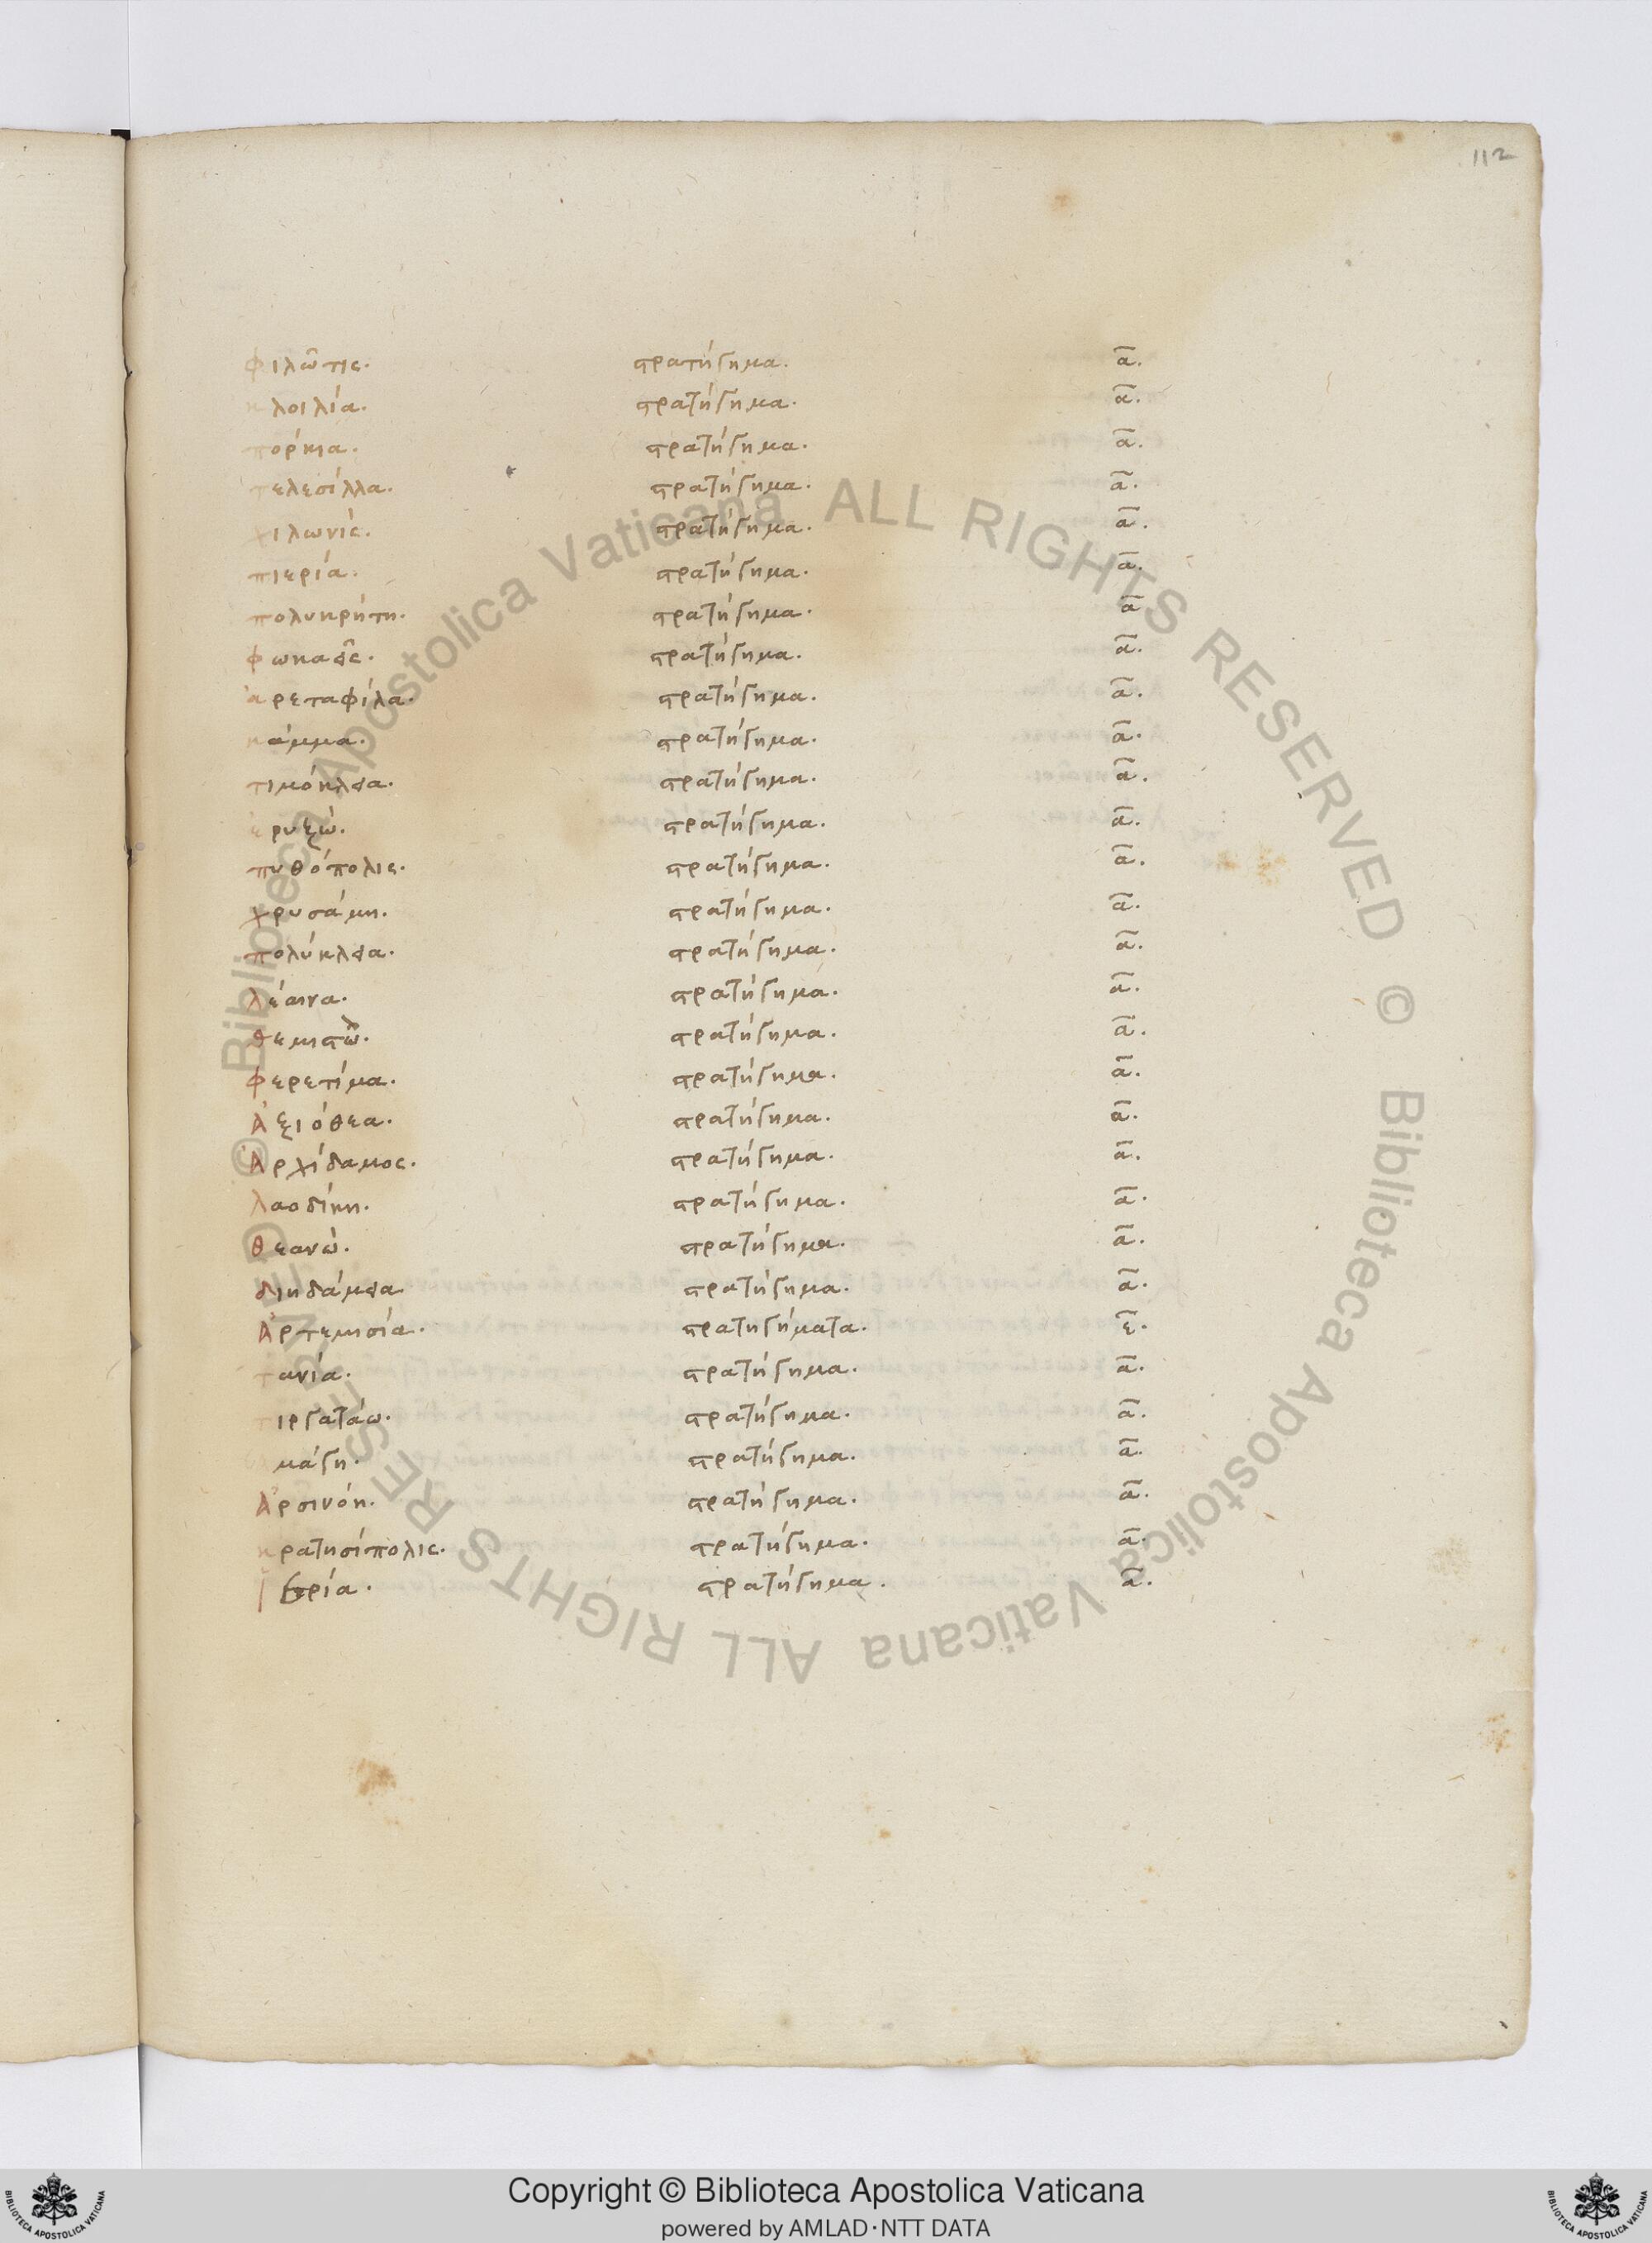 112
φιλῶτις. στρατήγημα. α.
κλοιλία. στρατήγημα. α.
πορκία. στρατήγημα. α.
τελεσίλλα. στρατήγημα. α.
χιλωνίς. στρατήγημα. α.
πιερία. στρατήγημα. α.
πολυκρήτη. στρατήγημα. α
φωκαεῖς. στρατήγημα. α.
ἀρεταφίλα. στρατήγημα. α.
κάμμα. στρατήγημα. α.
τιμόκλεια. στρατήγημα. α.
ἐρυξώ. στρατήγημα. α.
πυθόπολις. στρατήγημα. α.
χρυσάμη. στρατήγημα. α.
πολύκλεια. στρατήγημα. α.
λέαινα. στρατήγημα. α.
θεμιστῶ. στρατήγημα. α.
φερετίμα. στρατήγημα. α.
Ἀξιόθεα. στρατήγημα. α.
Ἀρχίδαμος. στρατήγημα. α.
λαοδίκη. στρατήγημα. α.
θεανώ. στρατήγημα. α.
διηδάμεια στρατήγημα. α.
Ἀρτεμισία. στρατηγήματα. ε.
τανία. στρατήγημα. α.
τιργατάω. στρατήγημα. α.
μάγη. στρατήγημα. α.
Ἀρσινόη. στρατήγημα. α.
κρατησίπολις. στρατήγημα. α.
ἱερία. στρατήγημα. α.
© Biblioteca Apostolica Vaticana ALL RIGHTS RESERVED © Biblioteca Apostolica Vaticana ALL RIGHTS RESERVED
Copyright © Biblioteca Apostolica Vaticana
powered by AMLAD·NTT DATA
BIBLIOTECA APOSTOLICA VATICANA
BIBLIOTECA APOSTOLICA VATICANA